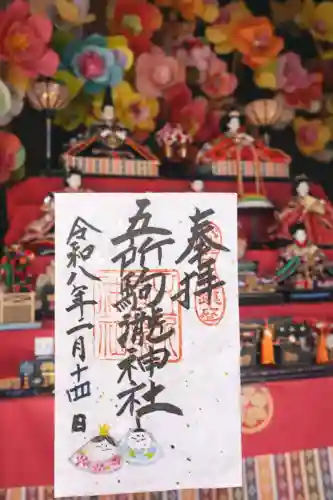 奉拝
五所駒瀧神社
令和八年一月十四日